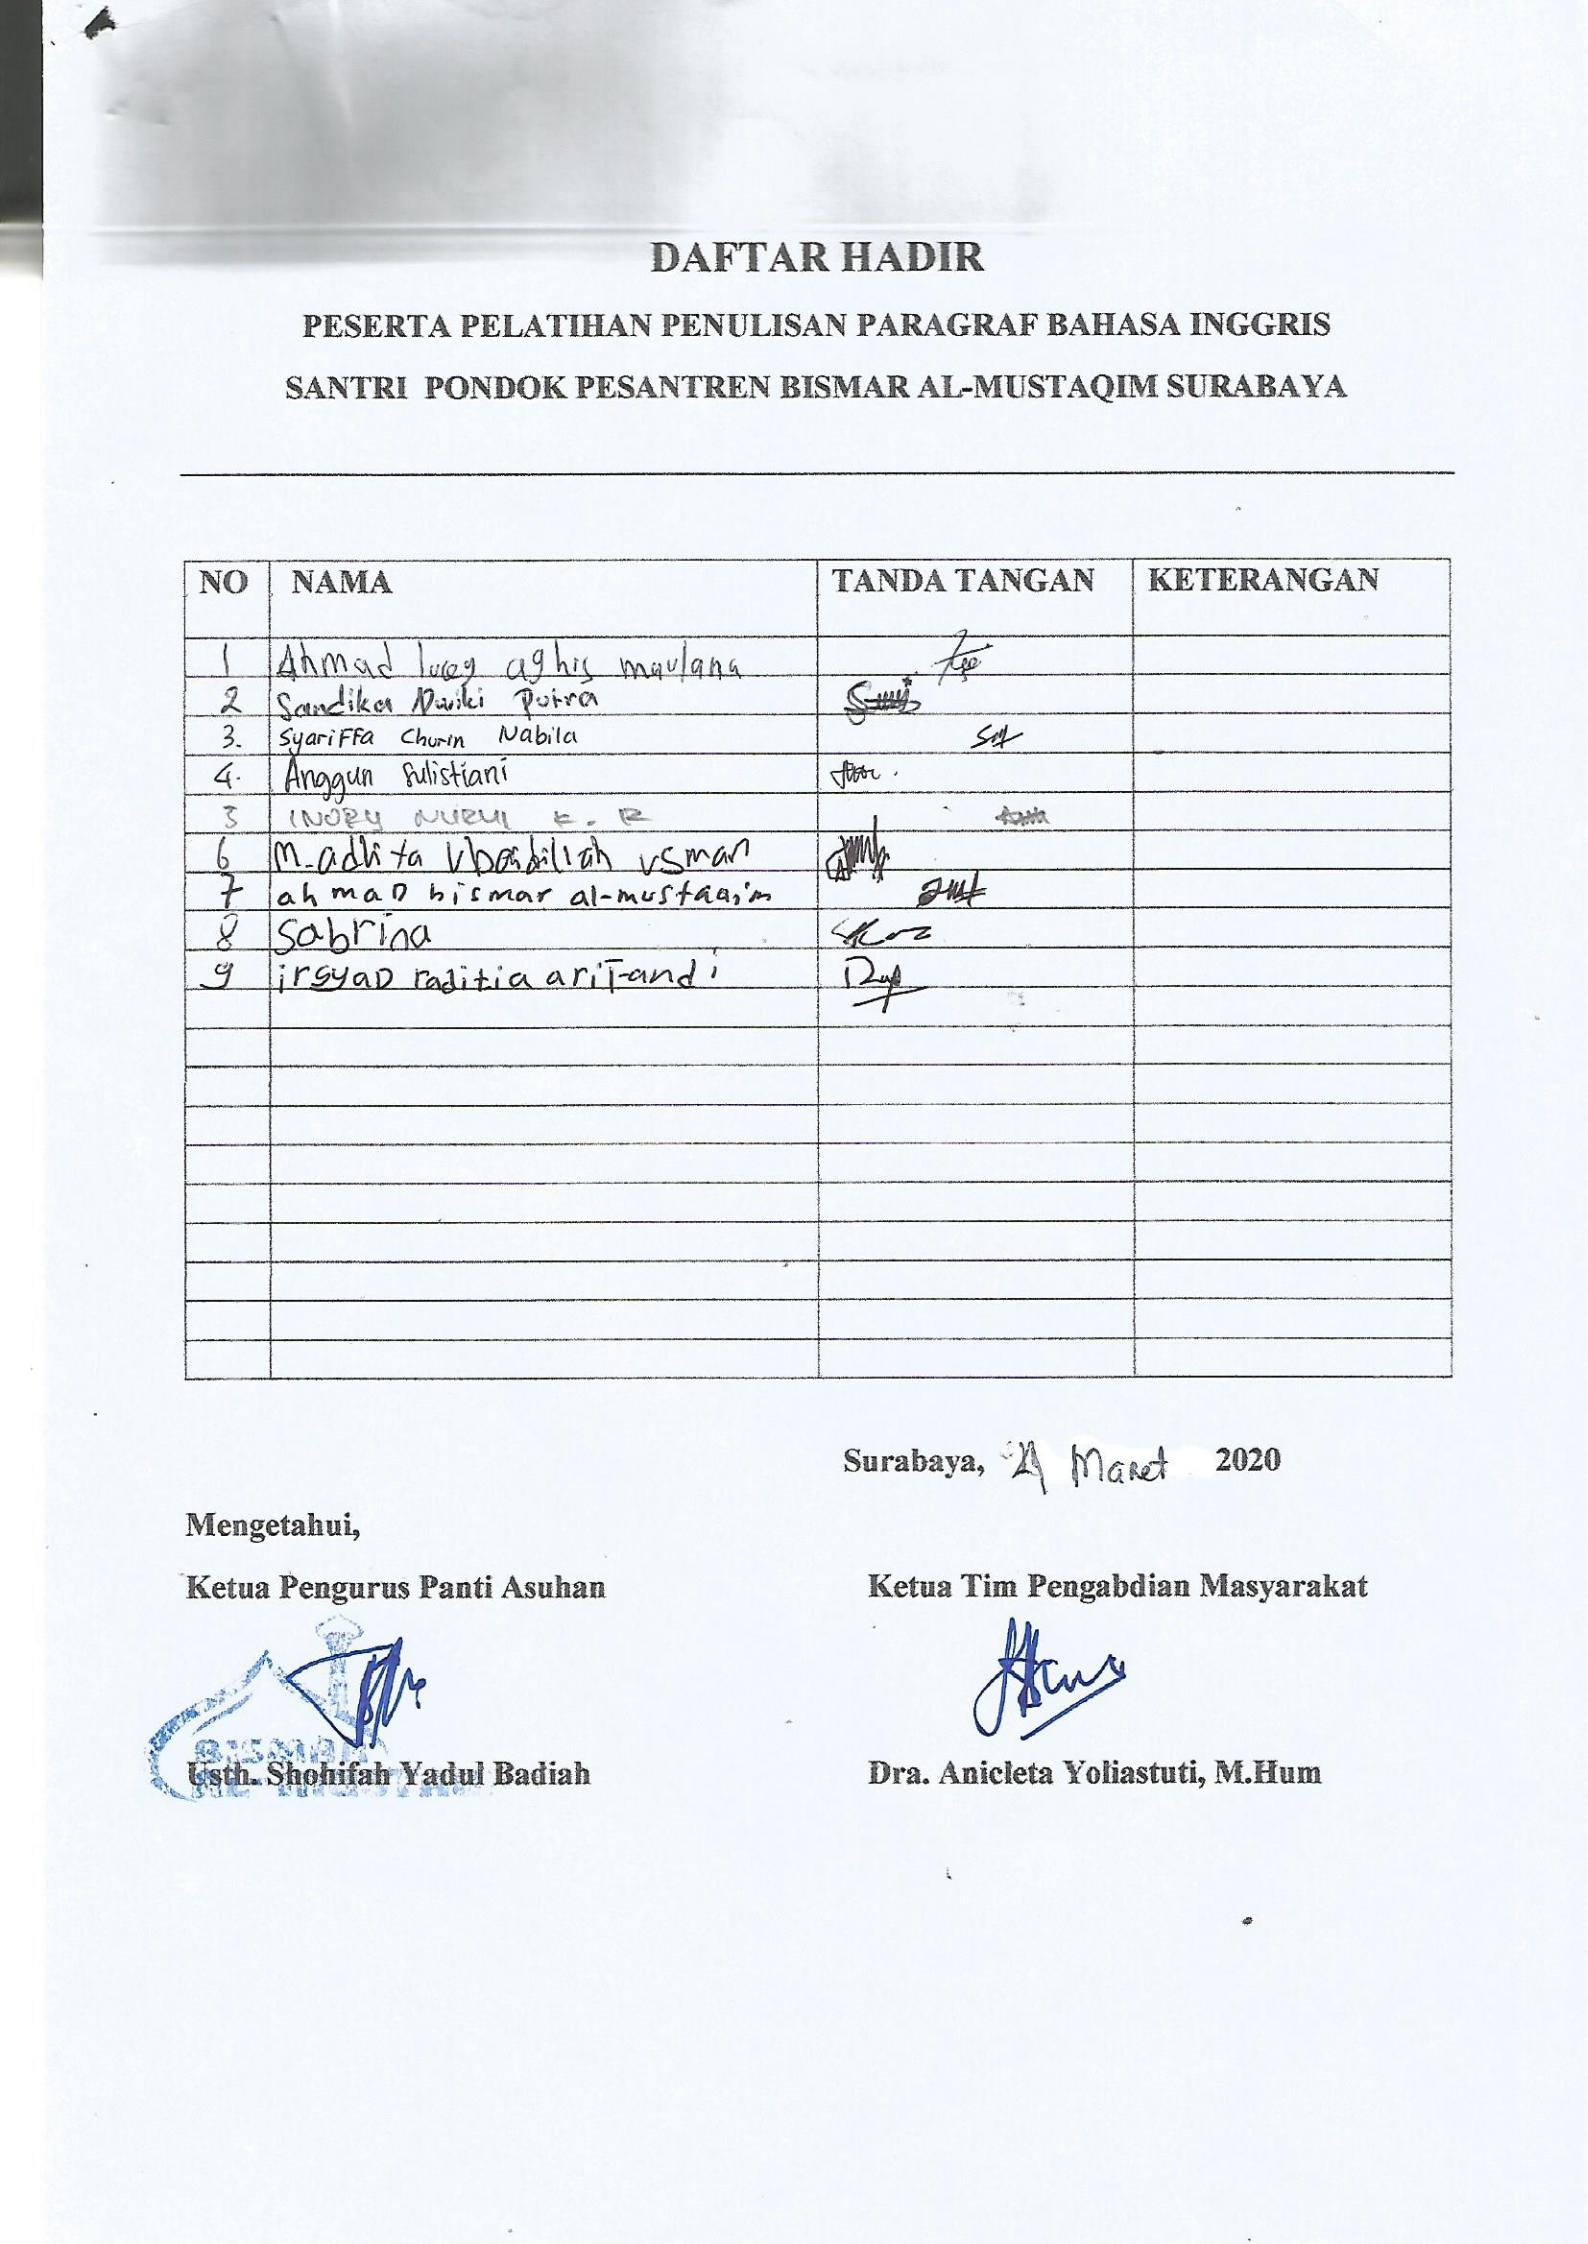 DAFTAR HADIR
PESERTA PELATIHAN PENULISAN PARAGRAF BAHASA INGGRIS
SANTRI PONDOK PESANTREN BISMAR AL-MUSTAQIM SURABAYA
NO NAMA TANDA TANGAN KETERANGAN
1 Ahmad aghis maulana
2 Sandika Dwiki Putra
3. Syariffa Churin Nabila
4. Anggun Sulistiani
5 INDRY NURUL K. R
6 M. adhita usman
7 ahmad bismar al-mustaqim
8 Sabrina
9 irsyad raditia arifandi
Surabaya, Maret 2020
Mengetahui,
Ketua Pengurus Panti Asuhan Ketua Tim Pengabdian Masyarakat
BISMAR
Usth. Shohifah Yadul Badiah Dra. Anicleta Yoliastuti, M.Hum